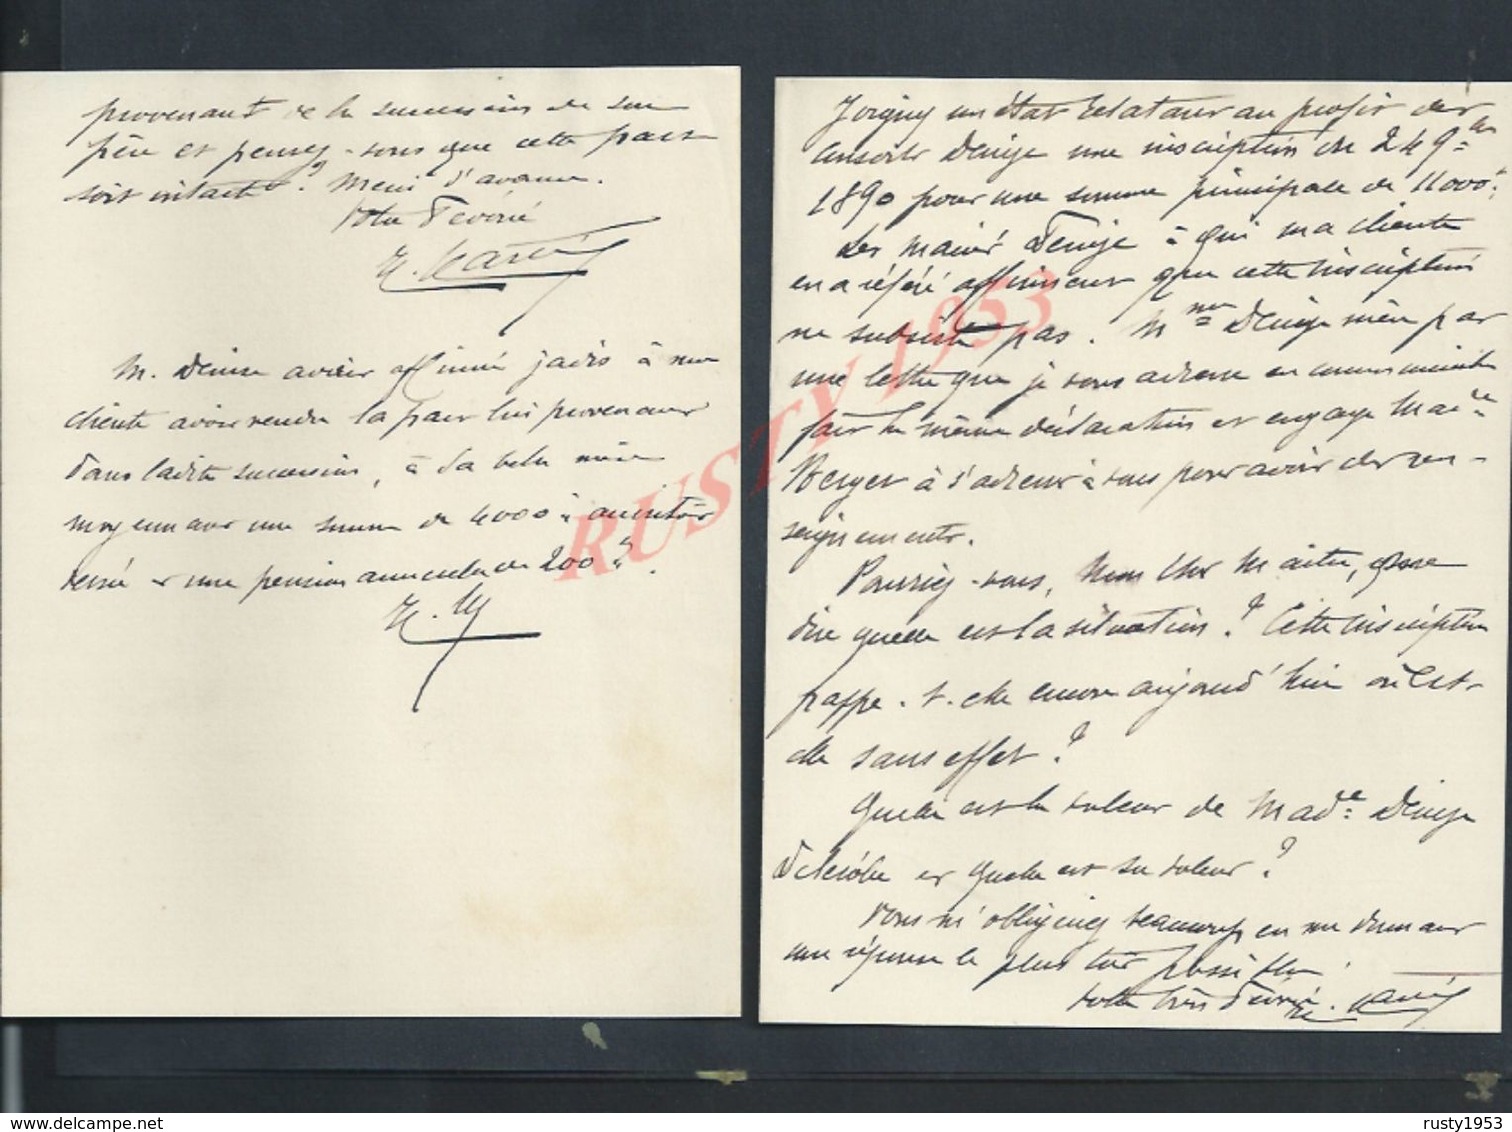 provenant de la succession de son
père et pensez-vous que cette part
soit intacte? Merci d'avance.
Votre dévoué
M. Denise avait affirmé jadis à ma
cliente avoir vendu la part lui provenant
dans ladite succession, à sa belle mère
moyennant une somme de 4000 à
versé et une pension annuelle de 200 f.
Joigny un état relatant au profit des
consorts Denise une inscription du 24 9bre
1890 pour une somme principale de 11000 f.
Les mariés Denise à qui ma cliente
en a référé affirment que cette inscription
ne subsiste pas. Mme Denise mère par
une lettre que je vous adresse en communication
fait la même déclaration et engage Made
Berger à s'adresser à vous pour avoir des ren-
seignements.
Pourriez-vous, Mon cher Maître, me
dire quelle est la situation? Cette inscription
frappe-t-elle encore aujourd'hui ou est-
elle sans effet?
Quelle est la valeur de Made Denise
et quelle est sa valeur?
Vous m'obligeriez beaucoup en me donnant
une réponse le plus tôt possible.
Votre très dévoué
RUSTY1953
delcampe.net
rusty1953